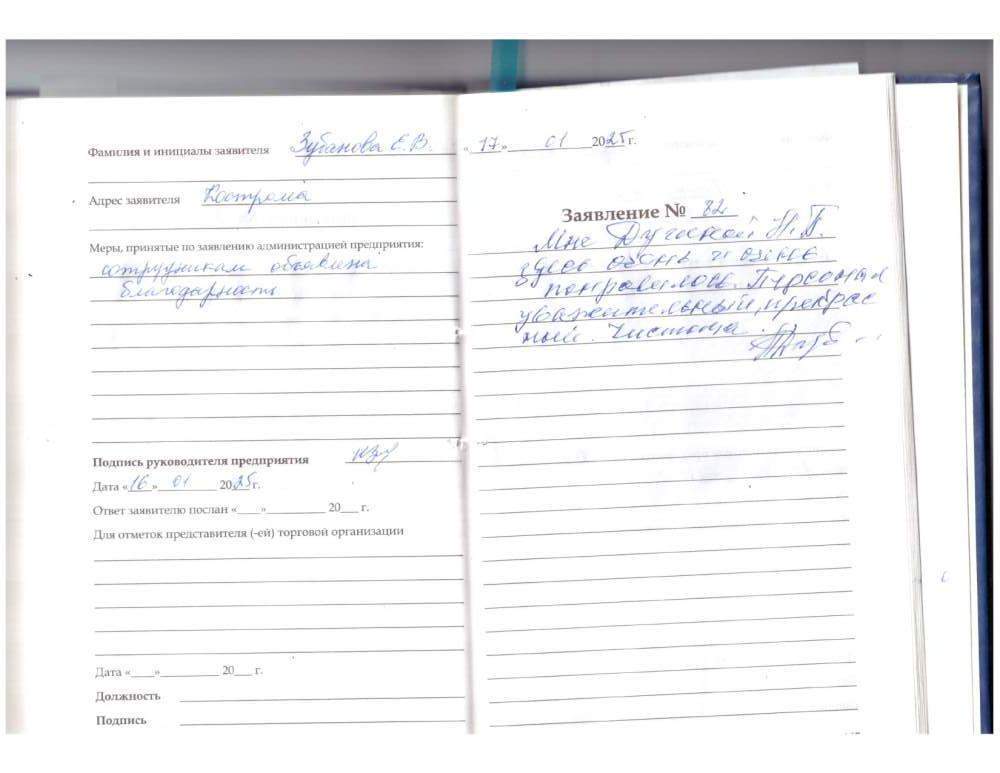 Фамилия и инициалы заявителя Зубанова Е.В.
Адрес заявителя Кострома
Меры, принятые по заявлению администрацией предприятия:
сотрудникам объявлена
благодарность
Подпись руководителя предприятия
Дата «16» 01 2025 г.
Ответ заявителю послан «____»__________ 20___ г.
Для отметок представителя (-ей) торговой организации
Дата «____»__________ 20___ г.
Должность
Подпись
«17» 01 2025 г.
Заявление № 82
Мне Н.П.
здесь очень и очень
понравилось. Персонал
уважительный, прекрас
ный. Чистота.